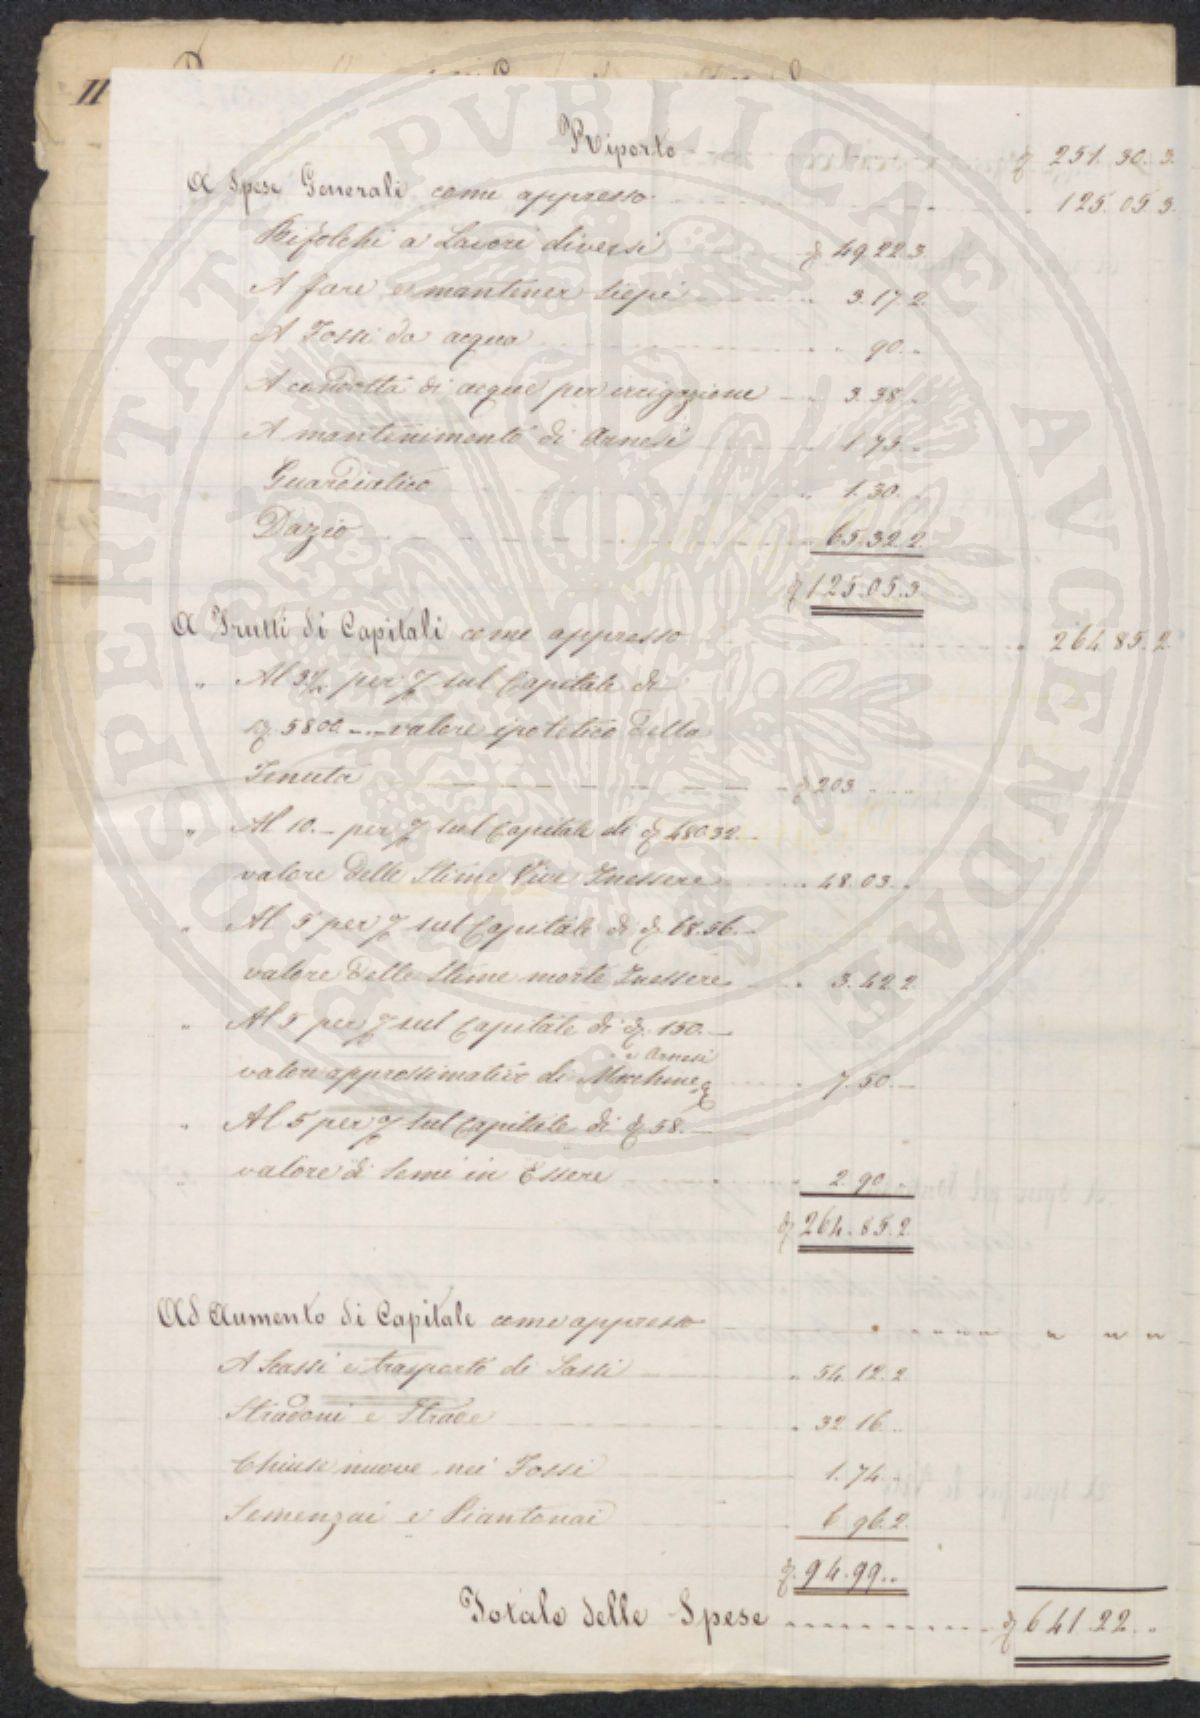 II
Riporto ₰ 251. 30. 3.
A Spese Generali come appresso 125. 05. 3.
Bifolchi a Lavori diversi ₰ 49. 22. 3.
A fare e mantener siepi 3. 17. 2.
A Fossi da acqua 90.
A condotta di acque per irrigazione 3. 38.
A mantenimento di Arnesi 1. 75.
Guardiatico 1. 30.
Dazio 65. 32. 2.
₰ 125. 05. 3.
A Frutti di Capitali come appresso 264. 85. 2.
" Al 3½ per % sul Capitale di
₰ 5800. valore ipotetico della
Tenuta ₰ 203
" Al 10. per % sul Capitale di ₰ 480.32.
valore delle Stime Vive Inessere 48. 03.
" Al 5 per % sul Capitale di ₰ 68.56.
valore delle Stime morte Inessere 3. 42. 2
" Al 5 per % sul Capitale di ₰ 150.
e Arnesi
valore approssimativo di Machine 7. 50.
" Al 5 per % sul Capitale di ₰ 58.
valore di Semi in Essere 2. 90.
₰ 264. 85. 2.
Ad Aumento di Capitale come appresso " " "
A Scassi e trasporto di Sassi 54. 12. 2
Stradoni e Strade 32. 16.
Chiuse nuove nei Fossi 1. 74.
Semenzai e Piantonai 6. 96. 2.
₰ 94. 99.
Totale delle Spese ₰ 641. 22.
PROSPERITATI PVBLICAE AVGENDAE